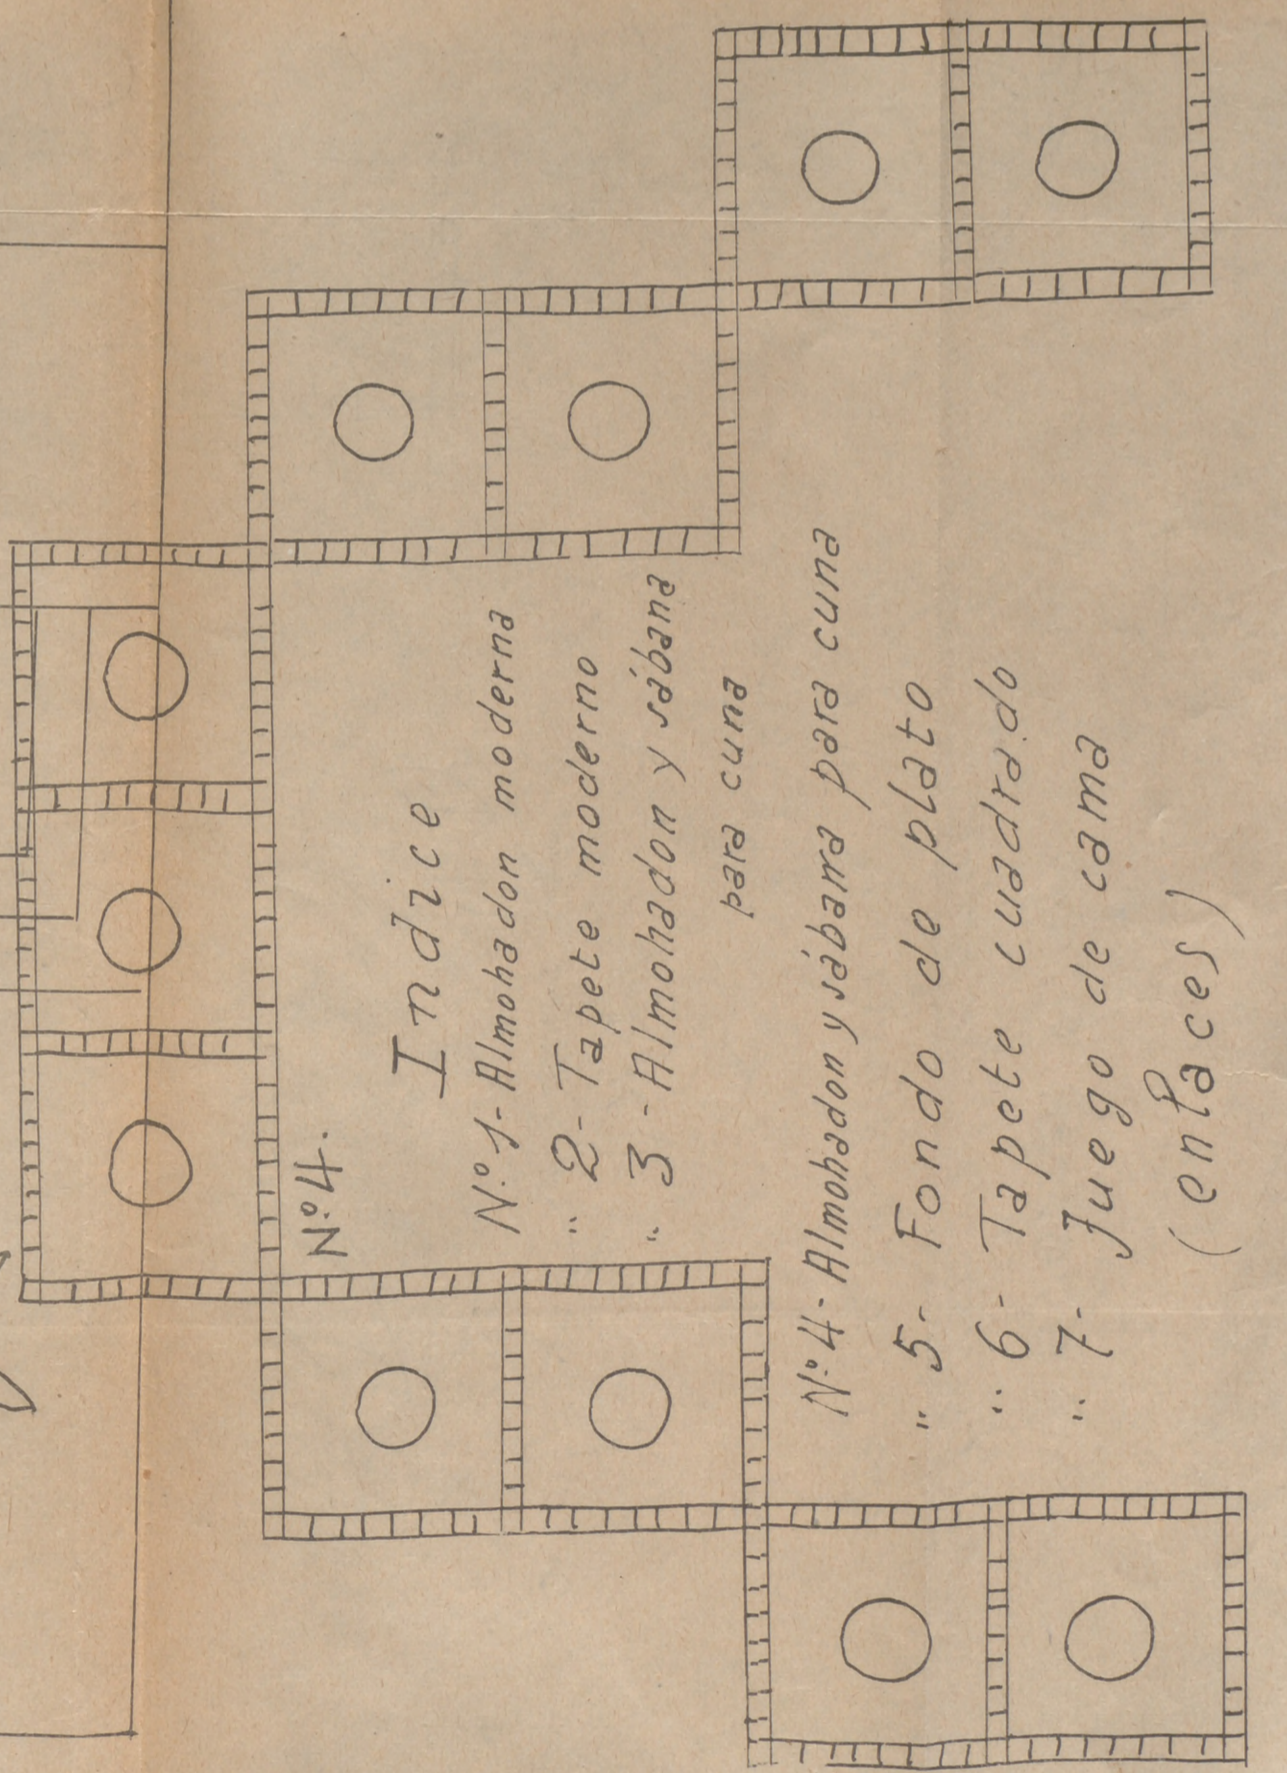 Nº 4.
Indice
Nº 1- Almohadon moderna
" 2- Tapete moderno
" 3- Almohadon y sábana
para cuna
Nº 4- Almohadon y sábana para cuna
" 5- Fondo de plato
" 6- Tapete cuadrado
" 7- Juego de cama
(enlaces)